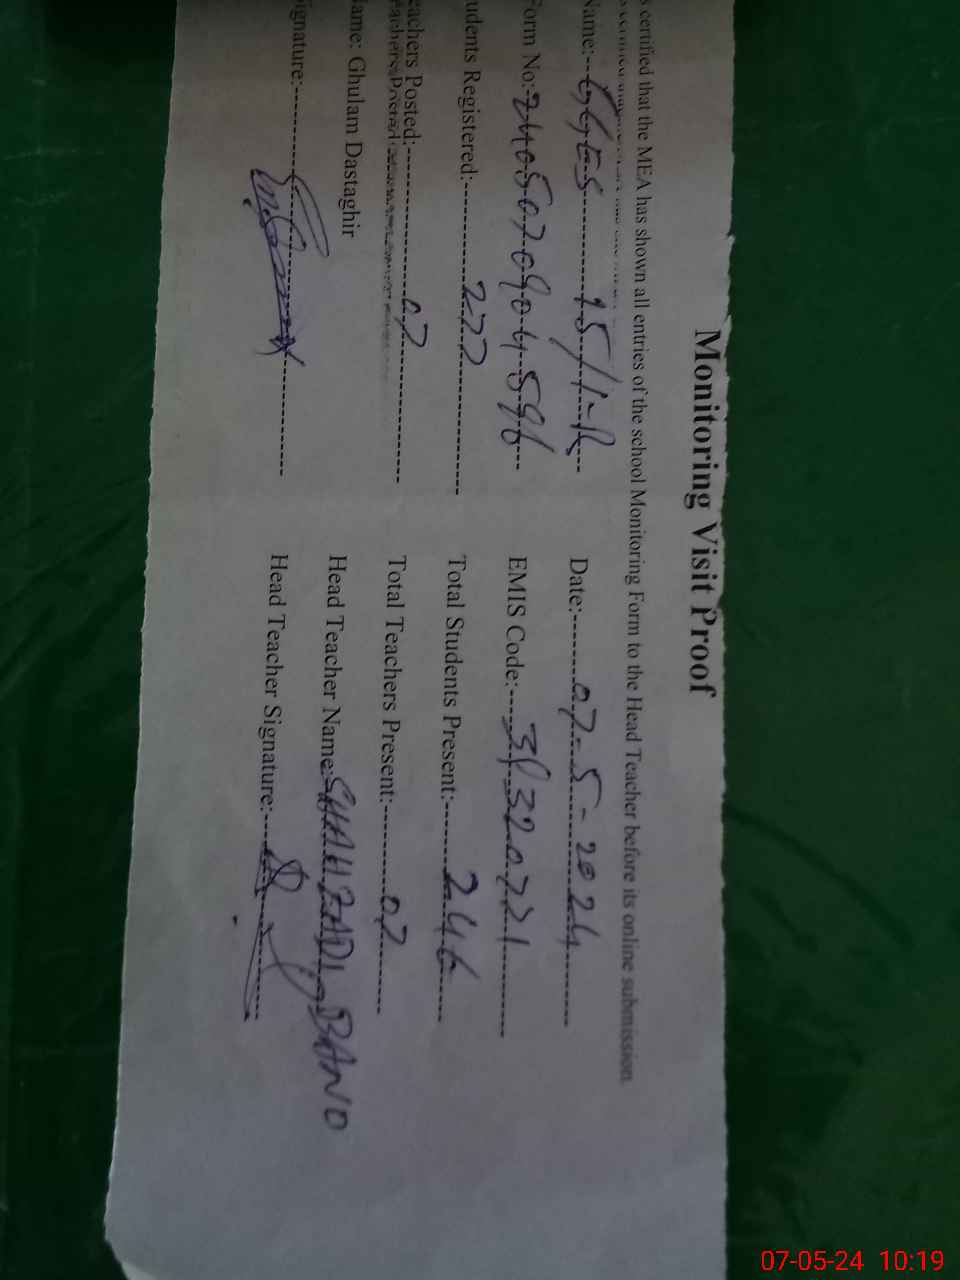 Monitoring Visit Proof
s certified that the MEA has shown all entries of the school Monitoring Form to the Head Teacher before its online submission.
Name:--GGES 15/1-R Date:-07-5-2024
Form No:-2405070904596 EMIS Code:-
udents Registered:-277 Total Students Present:-246
eachers Posted:-07 Total Teachers Present:-07
ame: Ghulam Dastaghir Head Teacher Name:SHAHZADI BANO
ignature:- Head Teacher Signature:-
07-05-24 10:19